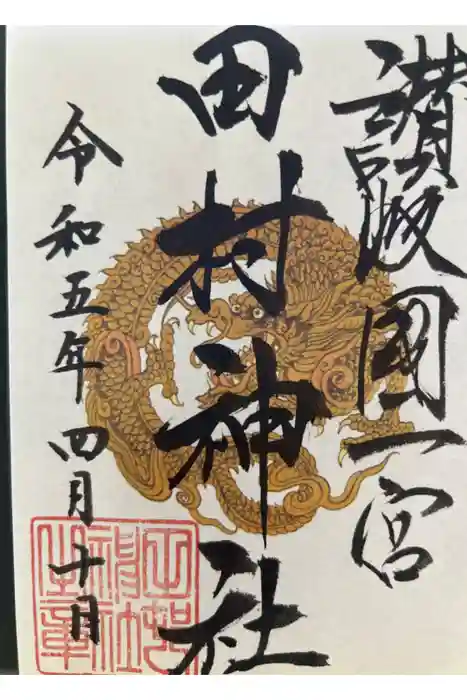 讃岐國一宮
田村神社
令和五年四月十日
田村
神社
之章